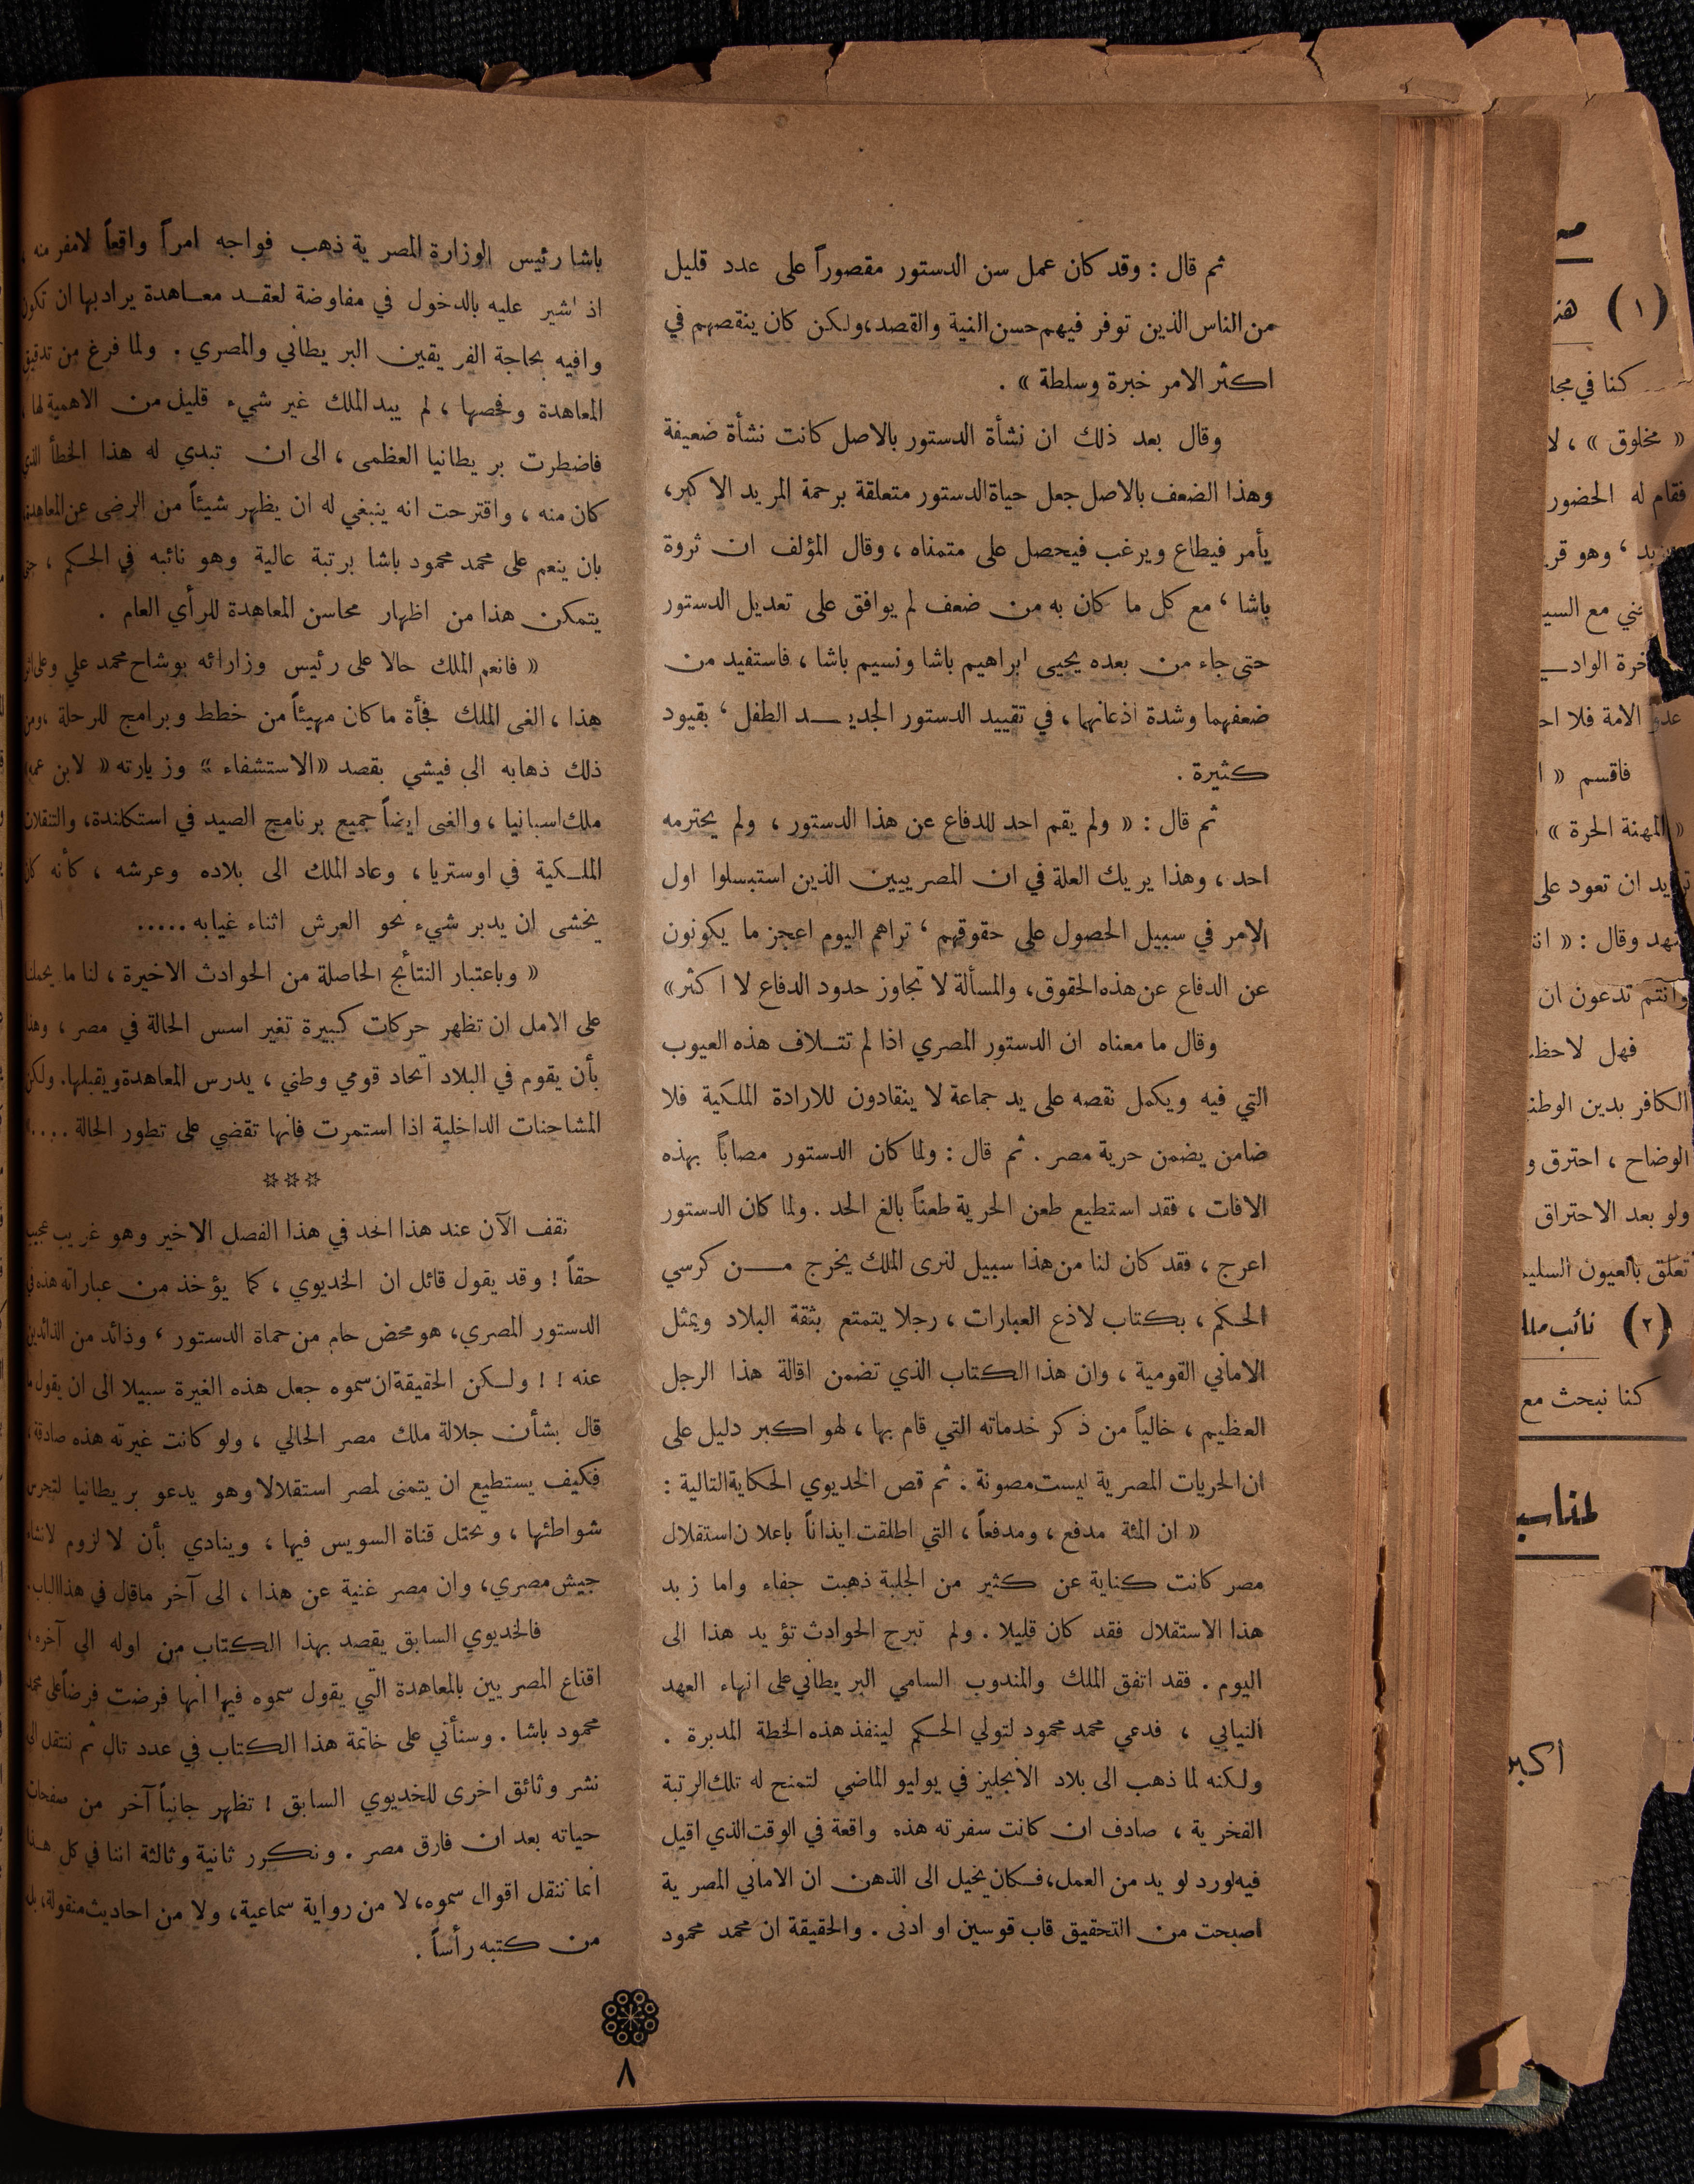 ثم قال : وقد كان عمل سن الدستور مقصوراً على عدد قليل
من الناس الذين توفر فيهم حسن النية والقصد، ولكن كان ينقصهم في
اكثر الامر خبرة وسلطة » .
وقال بعد ذلك ان نشأة الدستور بالاصل كانت نشأة ضعيفة
وهذا الضعف بالاصل جعل حياة الدستور متعلقة برحمة المريد الاكبر،
يأمر فيطاع ويرغب فيحصل على متمناه ، وقال المؤلف ان ثروة
باشا ، مع كل ما كان به من ضعف لم يوافق على تعديل الدستور
حتى جاء من بعده يحيى ابراهيم باشا ونسيم باشا ، فاستفيد من
ضعفهما وشدة اذعانهما ، في تقييد الدستور الجديـد الطفل ، بقيود
كثيرة .
ثم قال : « ولم يقم احد للدفاع عن هذا الدستور ، ولم يحترمه
احد ، وهذا يريك العلة في ان المصريين الذين استبسلوا اول
الامر في سبيل الحصول على حقوقهم ، تراهم اليوم اعجز ما يكونون
عن الدفاع عن هذه الحقوق، والمسألة لا تجاوز حدود الدفاع لا اكثر»
وقال ما معناه ان الدستور المصري اذا لم تتـلاف هذه العيوب
التي فيه ويكمل نقصه على يد جماعة لا ينقادون للارادة الملكية فلا
ضامن يضمن حرية مصر . ثم قال : ولما كان الدستور مصاباً بهذه
الافات ، فقد استطيع طعن الحرية طعناً بالغ الحد . ولما كان الدستور
اعرج ، فقد كان لنا من هذا سبيل لنرى الملك يخرج مـن كرسي
الحكم ، بكتاب لاذع العبارات ، رجلا يتمتع بثقة البلاد ويمثل
الاماني القومية ، وان هذا الكتاب الذي تضمن اقالة هذا الرجل
العظيم ، خالياً من ذكر خدماته التي قام بها ، لهو اكبر دليل على
ان الحريات المصرية ليست مصونة . ثم قص الخديوي الحكاية التالية :
« ان المئة مدفع ، ومدفعاً ، التي اطلقت ايذاناً باعلان استقلال
مصر كانت كناية عن كثير من الجلبة ذهبت جفاء واما زبد
هذا الاستقلال فقد كان قليلا . ولم تبرح الحوادث تؤيد هذا الى
اليوم . فقد اتفق الملك والمندوب السامي البريطاني على انهاء العهد
النيابي ، فدعي محمد محمود لتولي الحكم لينفذ هذه الخطة المدبرة .
ولكنه لما ذهب الى بلاد الانجليز في يوليو الماضي لتمنح له تلك الرتبة
الفخرية ، صادف ان كانت سفرته هذه واقعة في الوقت الذي اقيل
فيه لورد لويد من العمل، فـكان يخيل الى الذهن ان الاماني المصرية
اصبحت من التحقيق قاب قوسين او ادنى . والحقيقة ان محمد محمود
باشا رئيس الوزارة المصرية ذهب فواجه امراً واقعاً لامفر منه ،
اذ اشير عليه بالدخول في مفاوضة لعقـد معـاهدة يراد بها ان تكون
وافيه بحاجة الفريقين البريطاني والمصري . ولما فرغ من تدقيق
المعاهدة وفحصها ، لم يبد الملك غير شيء قليل من الاهمية لها ،
فاضطرت بريطانيا العظمى ، الى ان تبدي له هذا الخطأ الذي
كان منه ، واقترحت انه ينبغي له ان يظهر شيئاً من الرضى عن المعاهدة،
بان ينعم على محمد محمود باشا برتبة عالية وهو نائبه في الحكم ، حتى
يتمكن هذا من اظهار محاسن المعاهدة للرأي العام .
« فانعم الملك حالا على رئيس وزارائه بوشاح محمد علي وعلى اثر
هذا ، الغى الملك فجأة ما كان مهيئاً من خطط وبرامج للرحلة ، ومن
ذلك ذهابه الى فيشي بقصد «الاستشفاء » وزيارته « لابن عمه»
ملك اسبانيا ، والغى ايضاً جميع برنامج الصيد في استكلندة، والتنقلات
الملـكية في اوستريا ، وعاد الملك الى بلاده وعرشه ، كأنه كان
يخشى ان يدبر شيء نحو العرش اثناء غيابه .....
« وباعتبار النتائج الحاصلة من الحوادث الاخيرة ، لنا ما يحملنا
على الامل ان تظهر حركات كبيرة تغير اسس الحالة في مصر ، وهذا
بأن يقوم في البلاد اتحاد قومي وطني ، يدرس المعاهدة ويقبلها. ولكن
المشاحنات الداخلية اذا استمرت فانها تقضي على تطور الحالة ....»
☼☼☼
نقف الآن عند هذا الحد في هذا الفصل الاخير وهو غريب عجيب
حقاً ! وقد يقول قائل ان الخديوي ، كما يؤخذ من عباراته هذه في
الدستور المصري، هو محض حام من حماة الدستور ، وذائد من الذائدين
عنه ! ! ولـكن الحقيقة ان سموه جعل هذه الغيرة سبيلا الى ان يقول ما
قال بشأن جلالة ملك مصر الحالي ، ولو كانت غيرته هذه صادقة ،
فكيف يستطيع ان يتمنى لمصر استقلالا وهو يدعو بريطانيا لتحرس
شواطئها ، وتحتل قناة السويس فيها ، وينادي بأن لا لزوم لانشاء
جيش مصري، وان مصر غنية عن هذا ، الى آخر ماقال في هذا الباب.
فالخديوي السابق يقصد بهذا الكتاب من اوله الى آخره ،
اقناع المصريين بالمعاهدة التي يقول سموه فيها انها فرضت فرضاً على محمد
محمود باشا . وسنأتي على خاتمة هذا الكتاب في عدد تال ثم ننتقل الى
نشر وثائق اخرى للخديوي السابق ! تظهر جانباً آخر من صفحات
حياته بعد ان فارق مصر . ونكرر ثانية وثالثة اننا في كل هـذا
انما ننقل اقوال سموه، لا من رواية سماعية، ولا من احاديث منقولة، بل
من كتبه رأساً .
٨
(١) هن
كنا في مجل
« مخلوق » ، لا
فقام له الحضور
، وهو قر
ثني مع السي
خرة الواد
الامة فلا اح
فاقسم « ا
« المهنة الحرة »
تريد ان تعود على
وقال : « ان
وانتم تدعون ان
فهل لاحظ
الكافر بدين الوطن
الوضاح ، احترق و
ولو بعد الاحتراق
تعلق بالعيون السلي
(٢) نائب
كنا نبحث مع
لمناسب
أكبر